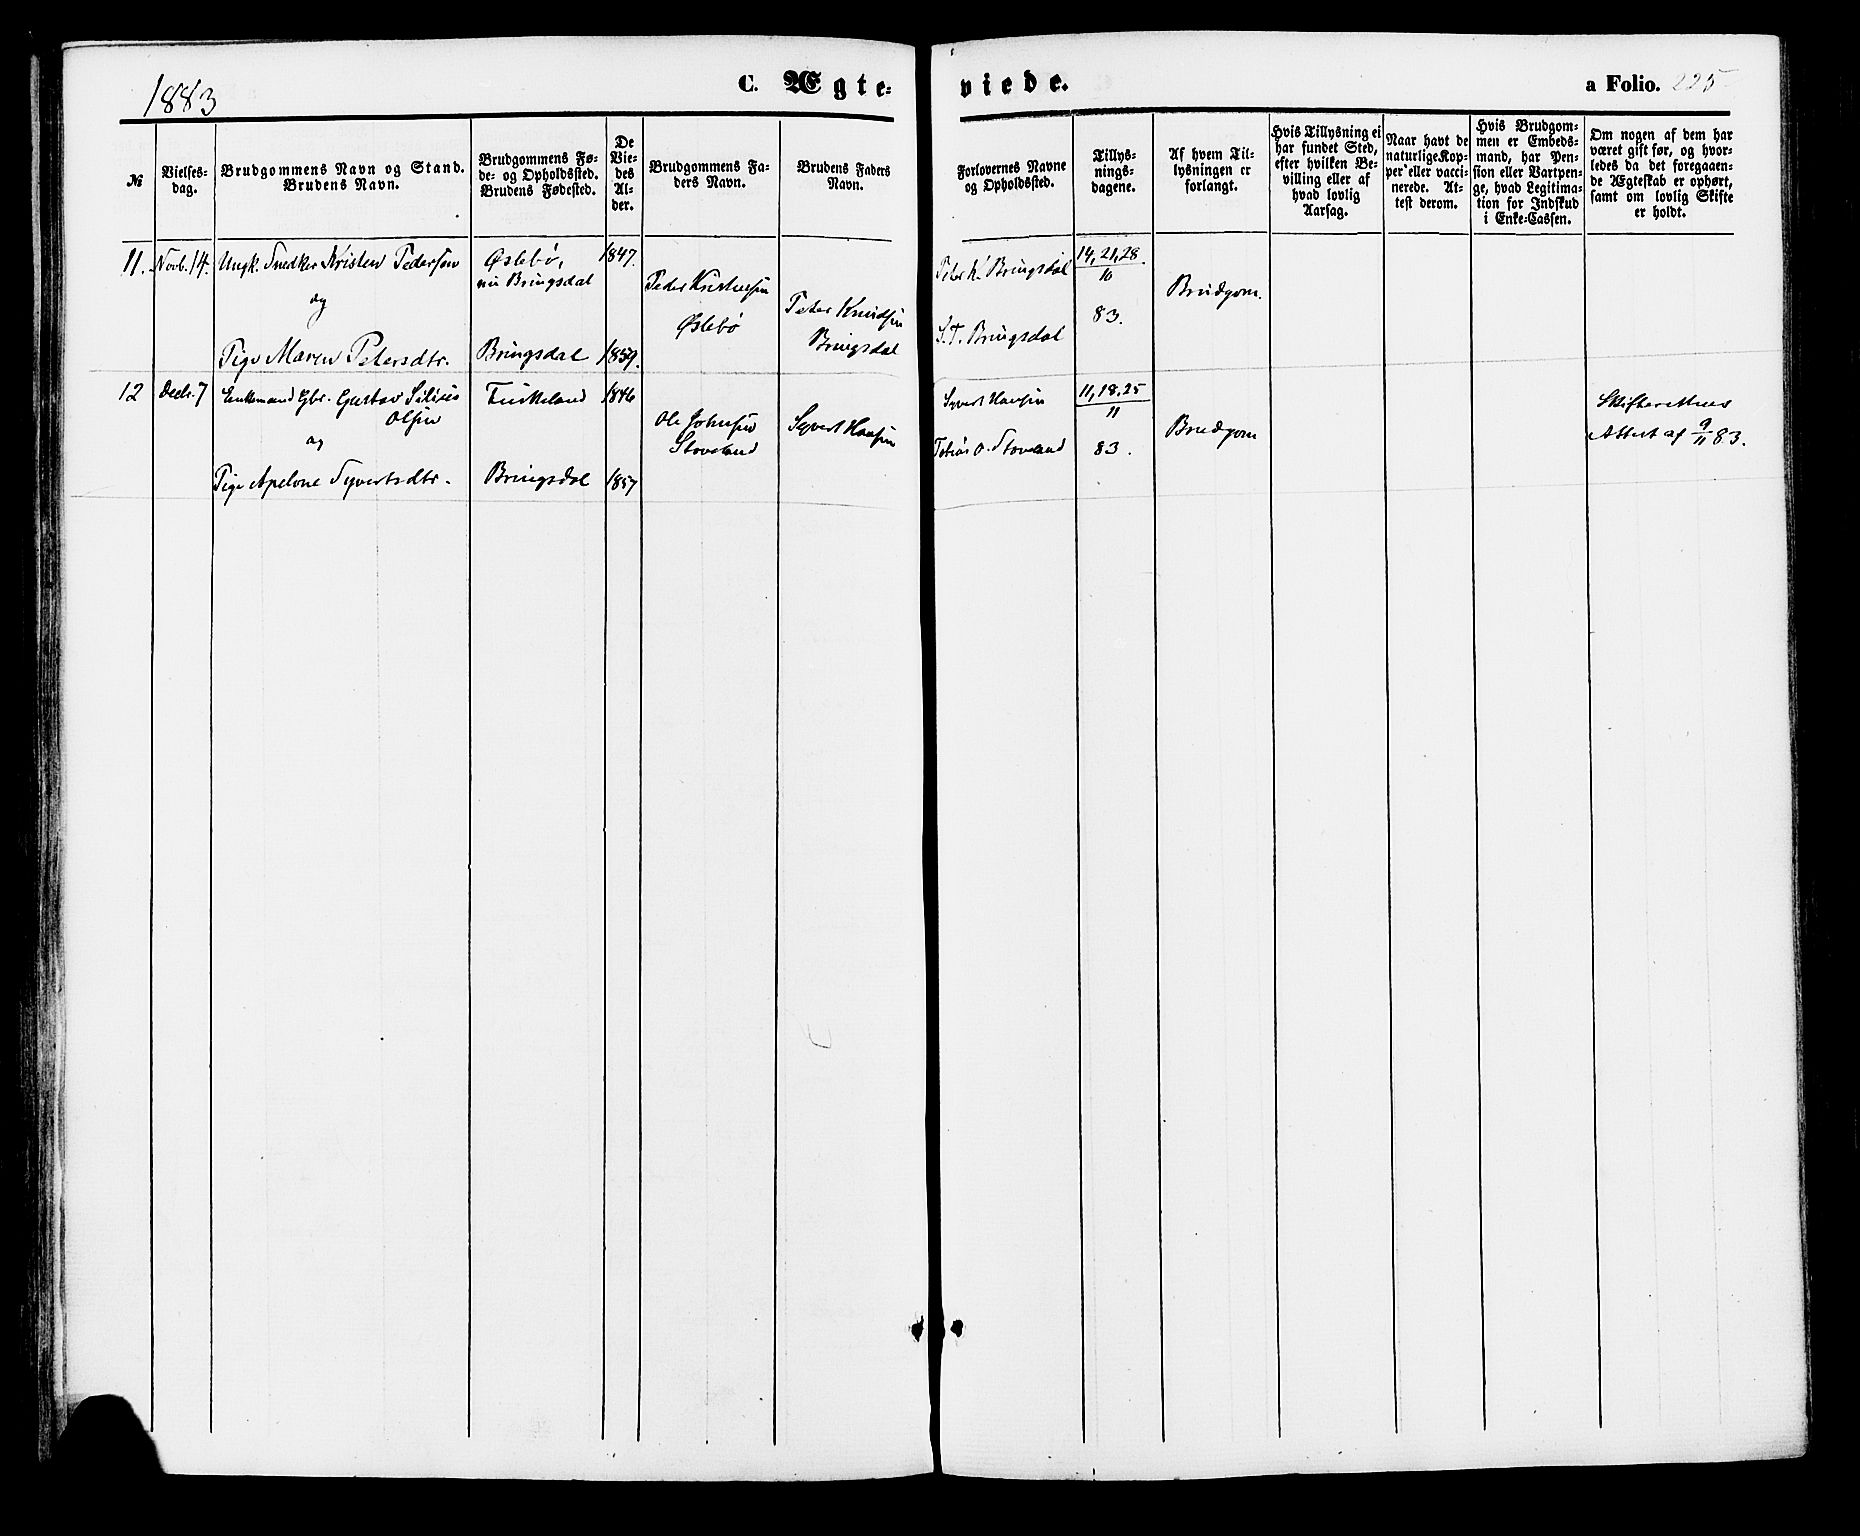 1883
C. Ægte-
viede.
a Folio. 225
№
Vielses-
dag.
Brudgommens Navn og Stand.
Brudens Navn.
Brudgommens Fø-
de- og Opholdssted.
Brudens Fødested.
De
Vie-
des
Al-
der.
Brudgommens Fa-
ders Navn.
Brudens Faders
Navn.
Forlovernes Navne
og Opholdssted.
Tillys-
nings-
dagene.
Af hvem Til-
lysningen er
forlangt.
Hvis Tillysning ei
har fundet Sted,
efter hvilken Be-
villing eller af
hvad lovlig
Aarsag.
Naar havt de
naturlige Kop-
per eller vacci-
nerede. At-
test derom.
Hvis Brudgom-
men er Embeds-
mand, har Pen-
sion eller Vartpen-
ge, hvad Legitima-
tion for Indskud
i Enke-Cassen.
Om nogen af dem har
været gift før, og hvor-
ledes da det foregaaen-
de Ægteskab er ophørt,
samt om lovlig Skifte
er holdt.
11. Novb. 14. Ungk. Snedker Kristen Pedersen
og
Pige Maren Petersdtr.
Øslebø,
nu Bringsdal
Bringsdal
1847.
1859.
Peder Kristensen
Øslebø
Peter Knudsen
Bringsdal
Peter K. Bringsdal
S. T. Bringsdal
14, 21, 28.
10
83.
Brudgom.
12 Decb. 7 Enkemand Gbr. Gustav
Olsen
og
Pige Apelone Syvertsdtr.
Bringsdal
1846
1857
Ole Johnsen
Stoveland
Syvert Hansen
Syvert Hansen
Tobias O. Stoveland
11, 18, 25
11
83.
Brudgom
Skifterettens
Attest af 9/11 83.